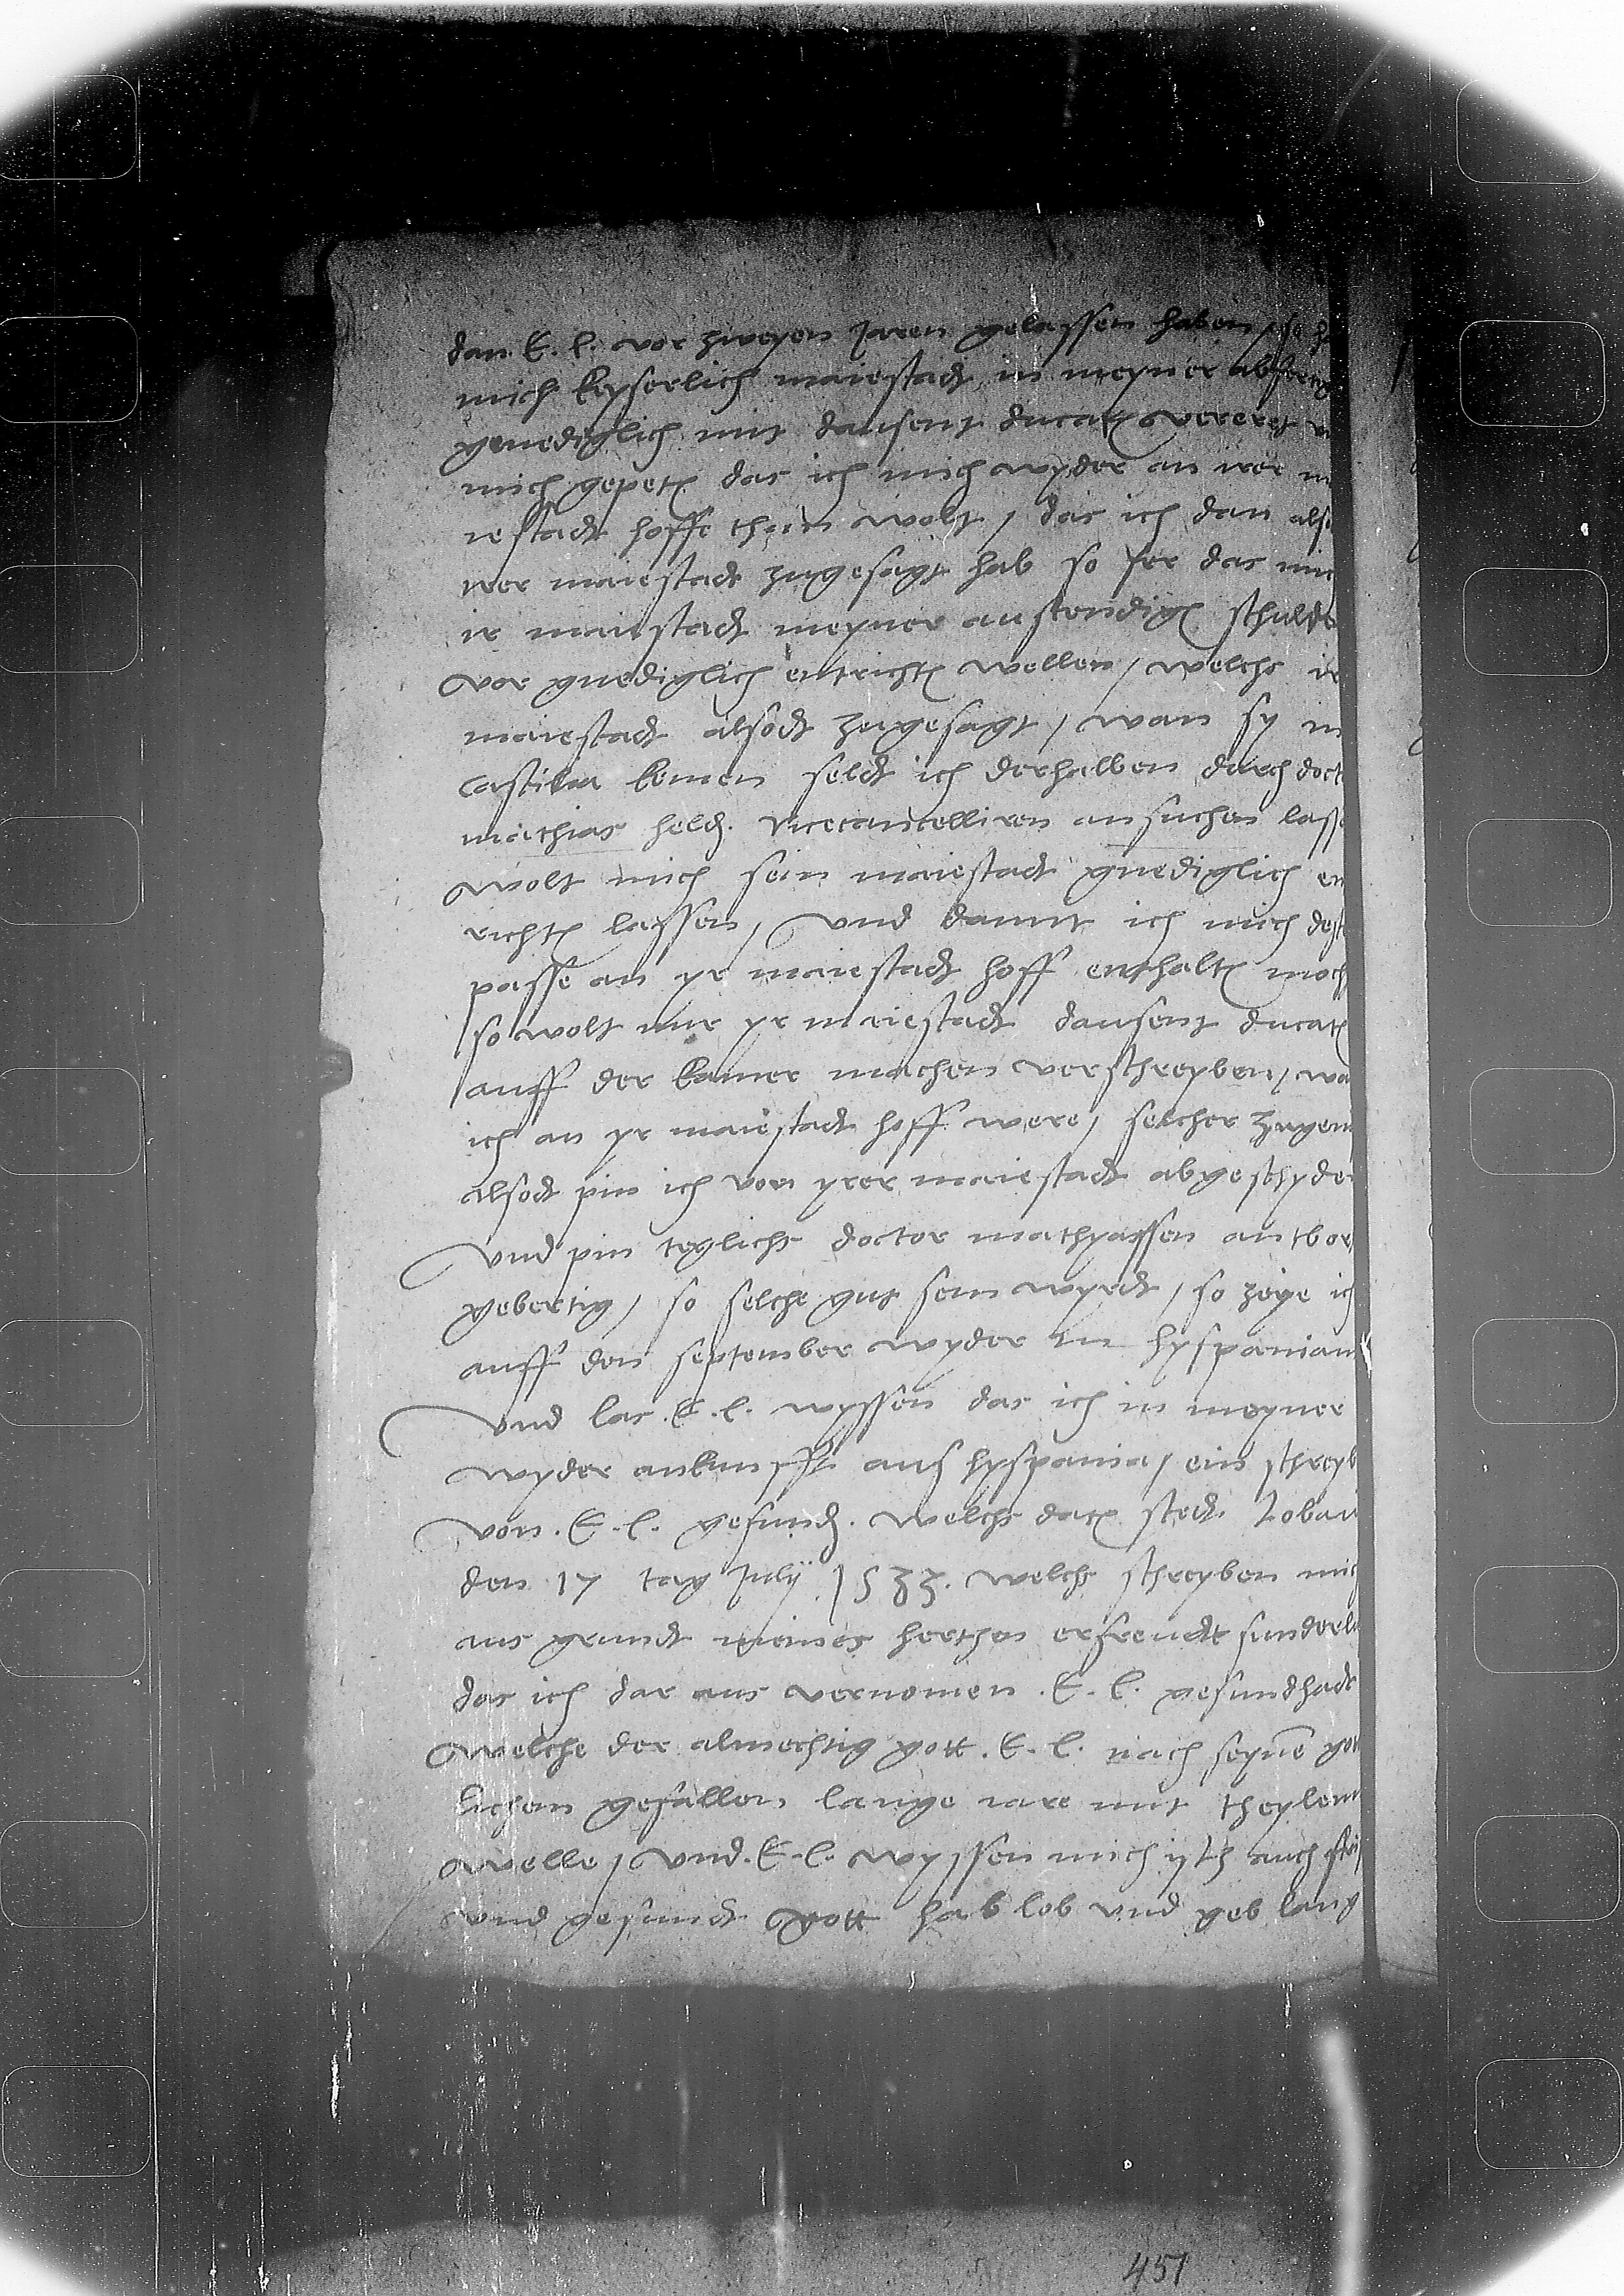 dan E. l. vor zweyen jaren gelassen haben, so
mich keyserlich maiestadt in meyner
genediglich mit dausent ducaten vereret
mich gepeten das ich mich wyder an irer
iestadt hoffe thun wolt, das ich dan also
irer maiestadt zugesagt hab so fer das mich
ir maiestadt meyner austendigen schulde
vor gnediglich entrichten wellen, welchs ir
maiestadt alsodt zugesagt, wan sy in
Castilia kemen seldt ich derhalben durch doct
mathias held. vicecancelliren ansuchen lasse
wolt mich sein maiestadt gnediglich en
richten lassen, und damit ich mich dest
passe an yr maiestadt hoff enthalten moch
so wolt mir yr maiestadt dausent ducaten
auff der kamer machen verschreyben, wa
ich an yr maiestadt hoff were, selcher
alsodt pin ich von yrer maiestadt abgeschyden
Und pin teglichs doctor mathyassen antbor
gebertig, so selche gut sein wyrdt, so zeye ich
auff den september wyder in hyspaniam
Und las E. l. wyssen das ich in meyner
wyder ankunfft aus hyspania, ein schreyb
von E. l. gefund. welchs daten stedt Lobau
den 17 tag Julÿ 1533. welchs schreyben mich
aus grundt meines herthen erfreudt sunderl
das ich dar aus vernomen E. l. gesundhadt
welche der almechtig gott E. l. nach seynē got
lichem gefallen lange iare mit theylen
welle, und E. l. wyssen mich ytz auch fris
und gesundt gott hab lob und geb lang
451